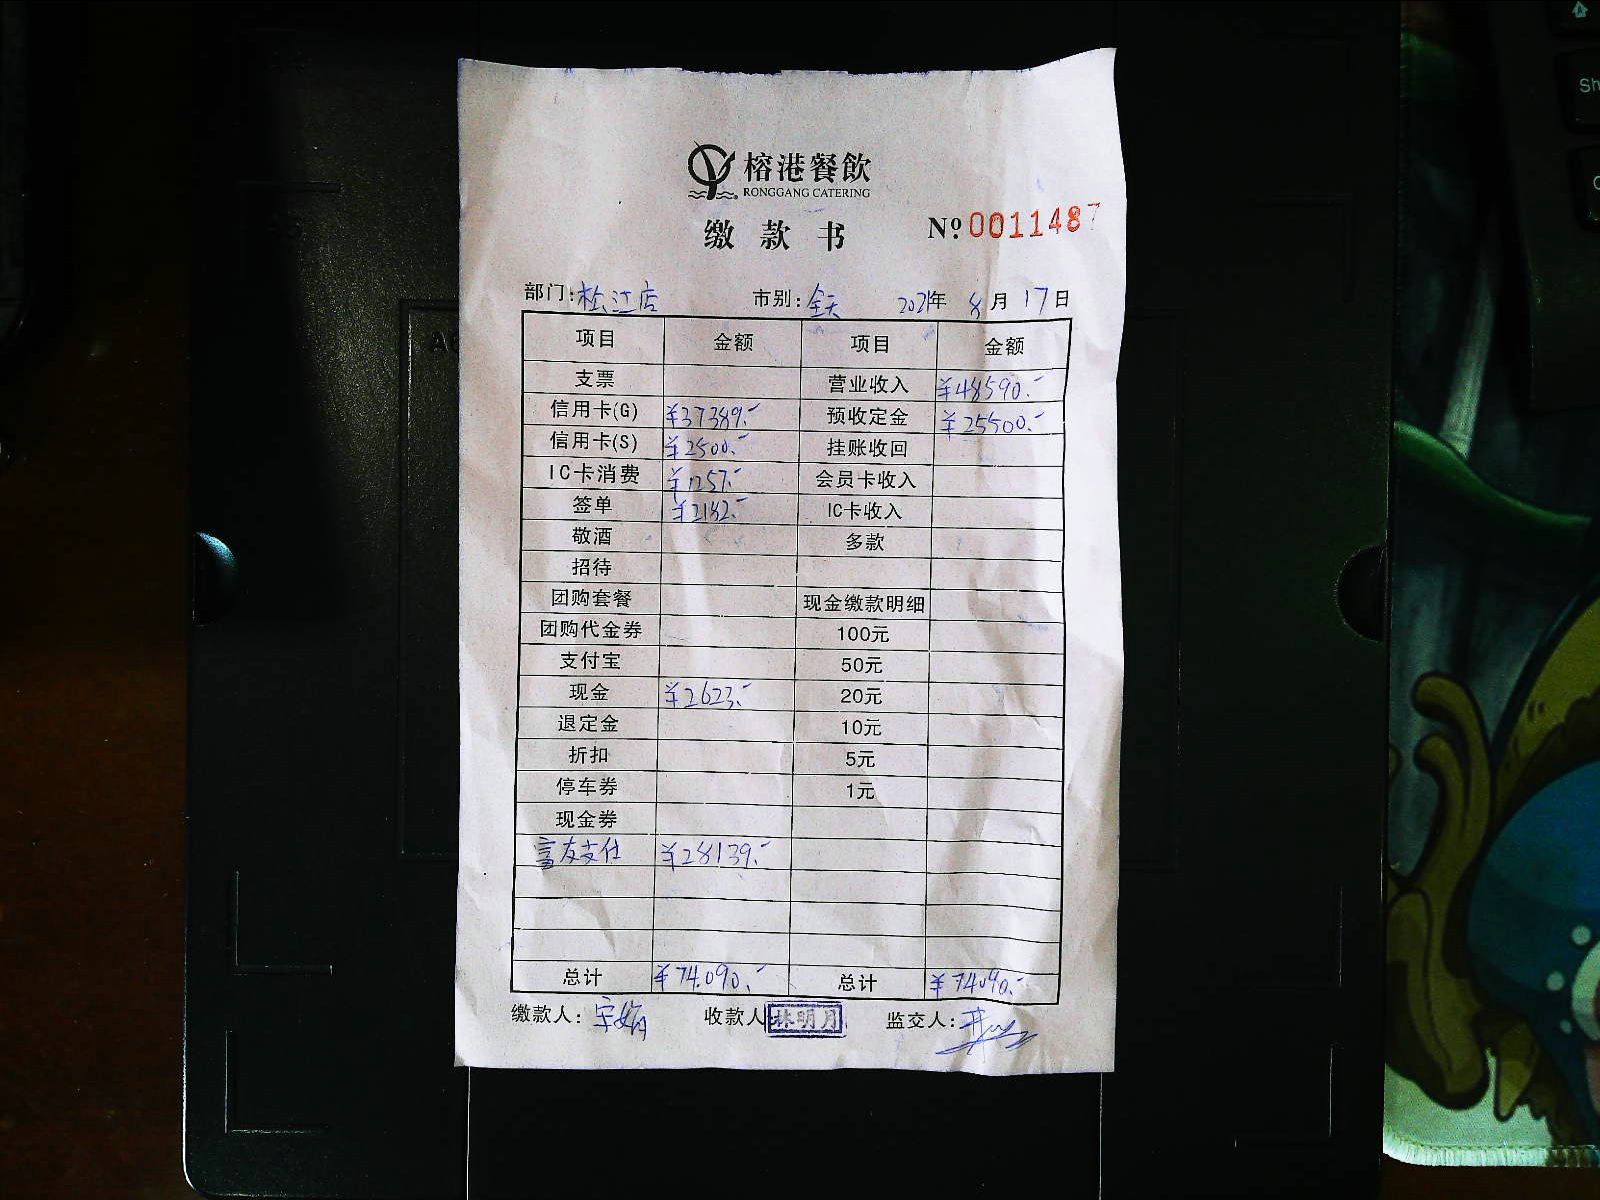 榕港餐飲
RONGGANG CATERING
缴款书 Nº 0011487
部门: 松江店 市别: 全天 2021年 8月 17日
项目 金额 项目 金额
支票 营业收入 ¥48590.-
信用卡(G) ¥37389.- 预收定金 ¥25500.-
信用卡(S) ¥2500.- 挂账收回
IC卡消费 ¥1257.- 会员卡收入
签单 ¥2182.- IC卡收入
敬酒 多款
招待
团购套餐 现金缴款明细
团购代金券 100元
支付宝 50元
现金 ¥2623.- 20元
退定金 10元
折扣 5元
停车券 1元
现金券
富友支付 ¥28139.-
总计 ¥74.090.- 总计 ¥74090.-
缴款人: 收款人: 林明月 监交人: